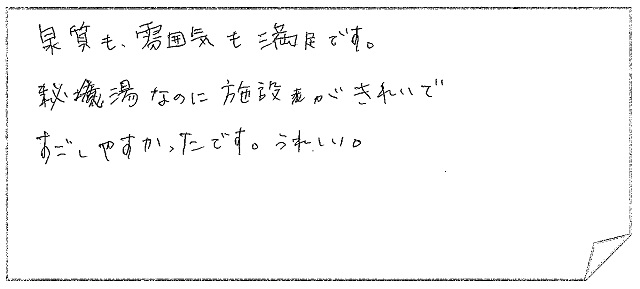 泉質も、雰囲気も満足です。
秘境湯なのに施設がきれいで
すごしやすかったです。うれしい。